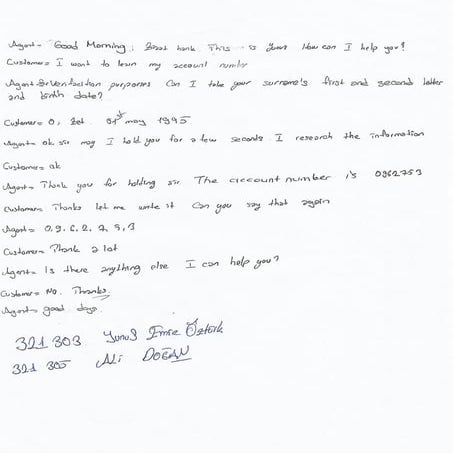 Agent= Good Morning. bank. This is How can I help you?
Customer= I want to learn my account number
Agent= verification purposes Can I take your surname's first and second letter
and birth date?
Customer= O, Zet. 01st may 1995
Agent= ok sir may I hold you for a few seconds I research the information
Customer= ok
Agent= Thank you for holding sir. The account number is 0962753
Customer= Thanks let me write it Can you say that again
Agent= 0.9.6.2.7.5.3
Customer= Thank a lot
Agent= Is there anything else I can help you?
Customer= No. Thanks.
Agent= good days.
321 303 Yunus Emre Öztürk
321 305 Ali DOĞAN